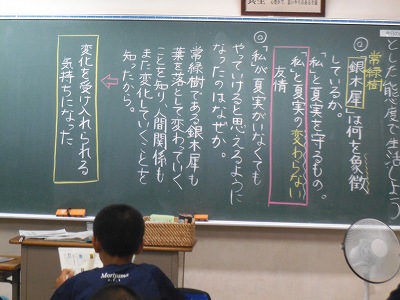 とした態度で生活しよう
常緑樹
◎「銀木犀」は何を象徴
しているか。
「私」と夏実を守るもの。
「私」と夏実の変わらない
友情
◎「私」が夏実がいなくても
やっていけると思えるように
なったのはなぜか。
常緑樹である銀木犀も
葉を落として変わっていく
ことを知り、人間関係も
また変化していくことを
知ったから。
変化を受け入れられる
気持ちになった
Moriyama